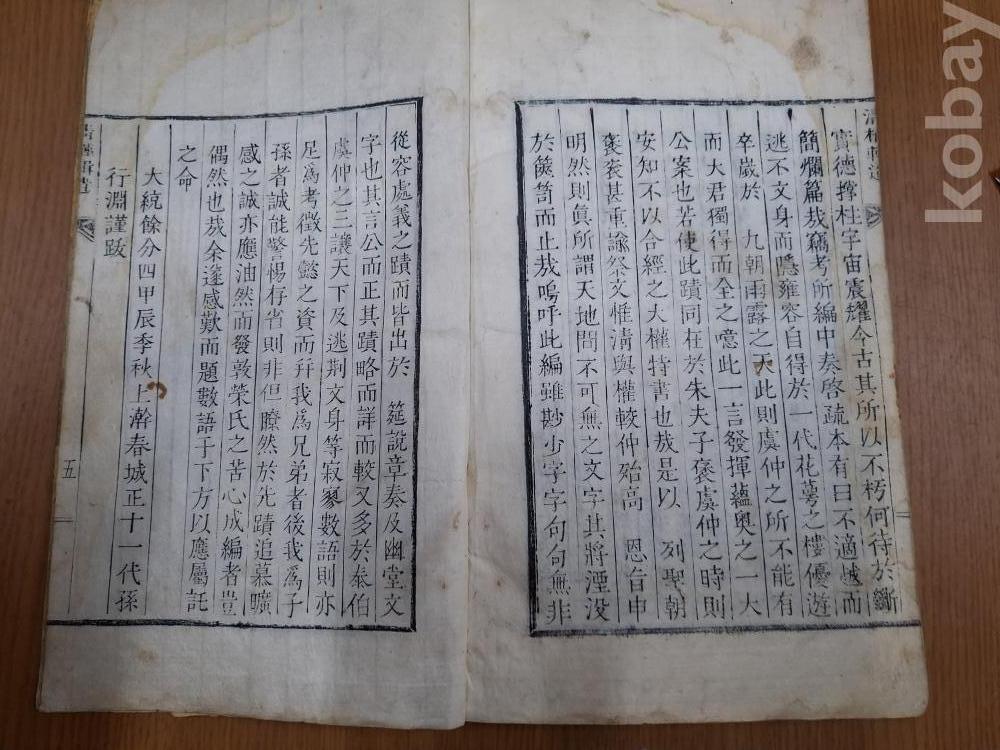 實德撐柱宇宙震耀今古其所以不朽何待於斷
簡爛篇哉竊考所編中奏啓疏本有曰不適越而
逃不文身而隱雍容自得於一代花萼之樓優遊
卒歲於 九朝雨露之天此則虞仲之所不能有
而大君獨得而全之噫此一言發揮蘊奧之一大
公案也若使此蹟同在於朱夫子褒虞仲之時則
安知不以合經之大權特書也哉是以 列聖朝
褒衮甚重諭祭文惟淸與權較仲殆高 恩旨申
明然則眞所謂天地間不可無之文字其將湮没
於篋笥而止哉嗚呼此編雖尠少字字句句無非
從容處義之蹟而皆出於 筵說章奏及幽堂文
字也其言公而正其蹟略而詳而較又多於泰伯
虞仲之三讓天下及逃荆文身等寂寥數語則亦
足爲考徵先懿之資而幷我爲兄弟者後我爲子
孫者誠能警惕存省則非但瞭然於先蹟追慕曠
感之誠亦應油然而發敦榮氏之苦心成編者豈
偶然也哉余遂感歎而題數語于下方以應屬託
之命
大統餘分四甲辰季秋上澣春城正十一代孫
行淵謹跋
五
kobay